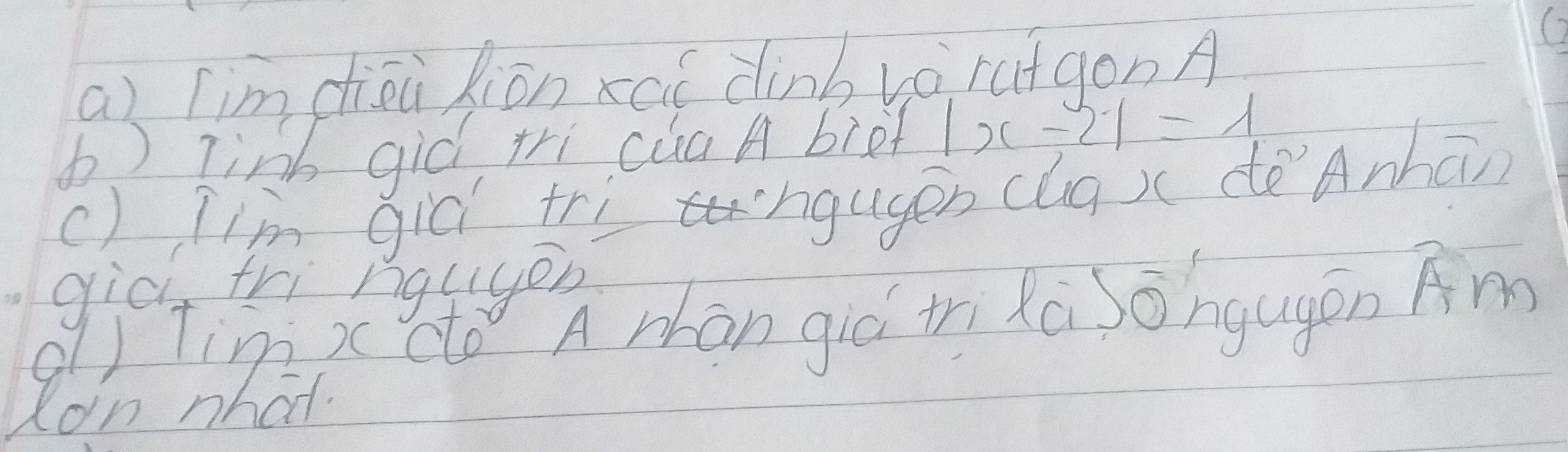 a) Tìm điều kiện xác định và rút gọn A
b) Tính giá trị của A biết |x-2| = 1
c) Tìm giá trị nguyên của x để A nhận
giá trị nguyên
d) Tìm x để A nhận giá trị là số nguyên Âm
lớn nhất.